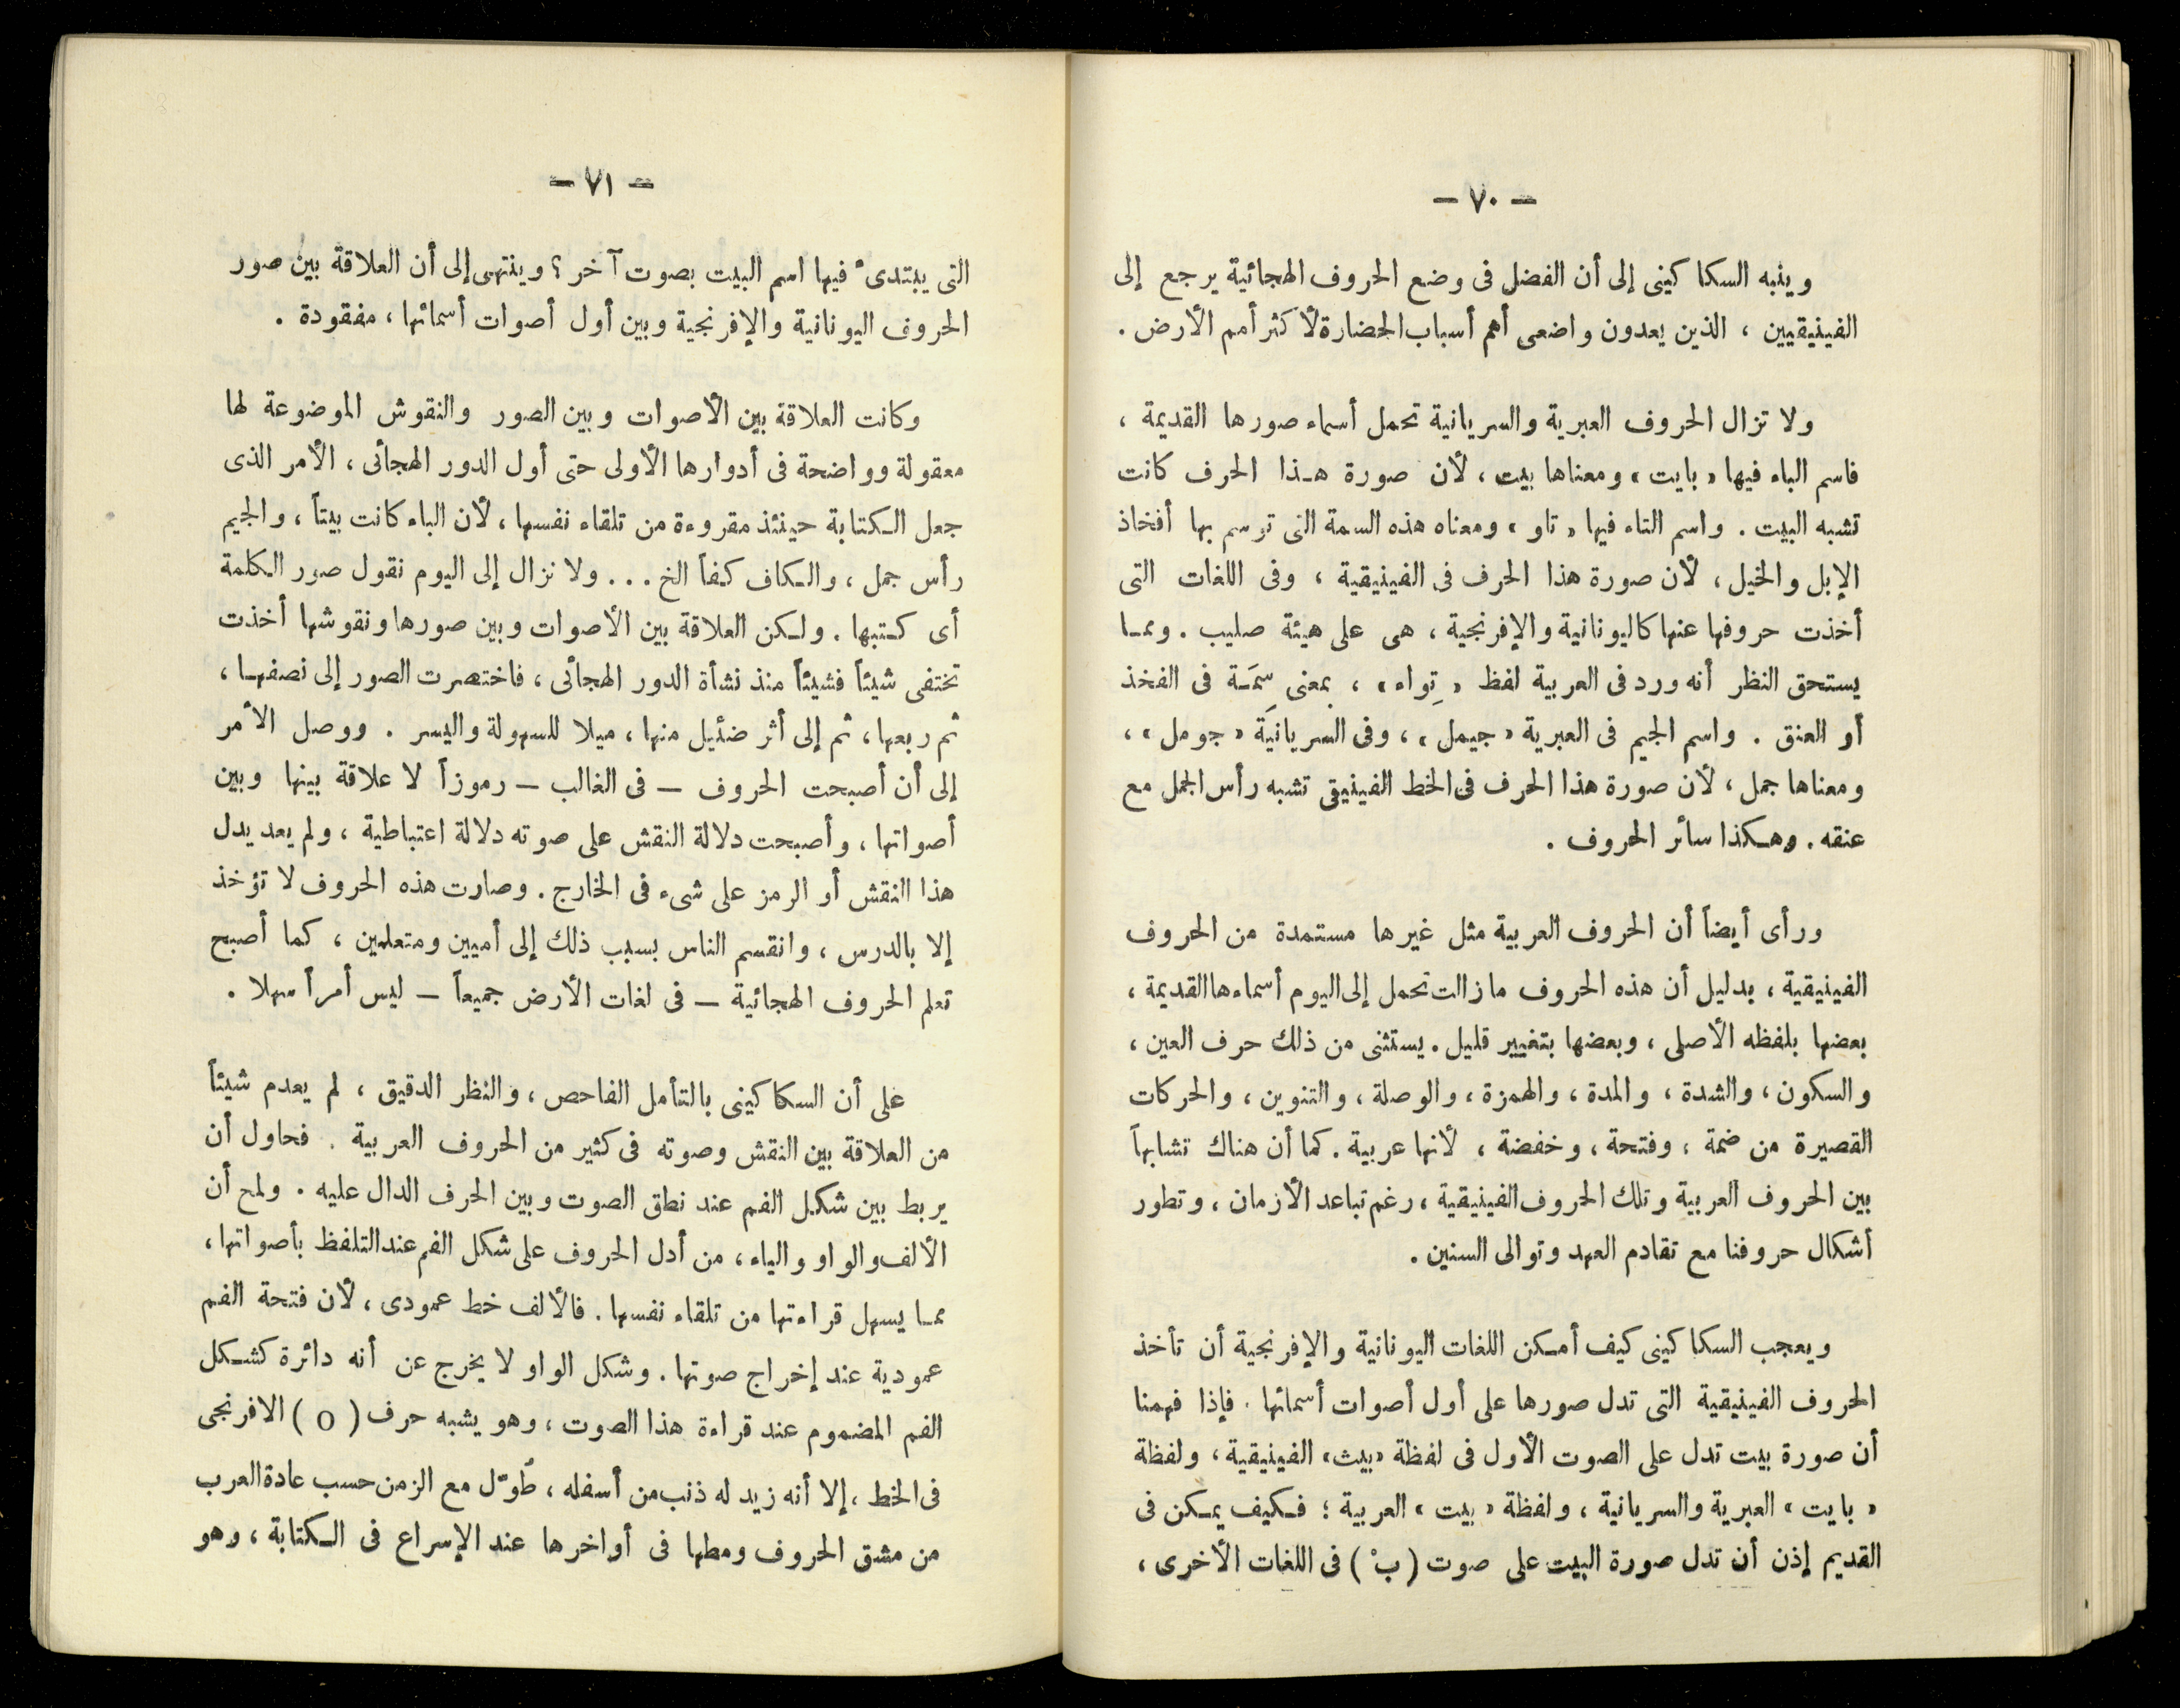 — ٧٠ —
وينبه السكاكينى إلى أن الفضل فى وضع الحروف الهجائية يرجع إلى
الفينيقيين ، الذين يعدون واضعى أهم أسباب الحضارة لأكثر أمم الأرض .
ولا تزال الحروف العبرية والسريانية تحمل أسماء صورها القديمة ،
فاسم الباء فيها « بايت » ومعناها بيت ، لأن صورة هذا الحرف كانت
تشبه البيت . واسم التاء فيها « تاو » ومعناه هذه السمة التى توسم بها أفخاذ
الإبل والخيل ، لأن صورة هذا الحرف فى الفينيقية ، وفى اللغات التى
أخذت حروفها عنها كاليونانية والإفرنجية ، هى على هيئة صليب . وممـا
يستحق النظر أنه ورد فى العربية لفظ « تِواء » ، بمعنى سِمَـة فى الفخذ
أو العنق . واسم الجيم فى العبرية « جيمل » ، وفى السريانية « جومل » ،
ومعناها جمل ، لأن صورة هذا الحرف فى الخط الفينيقى تشبه رأس الجمل مع
عنقه . وهـكذا سائر الحروف .
ورأى أيضاً أن الحروف العربية مثل غيرها مستمدة من الحروف
الفينيقية ، بدليل أن هذه الحروف مازالت تحمل إلى اليوم أسماءها القديمة ،
بعضها بلفظه الأصلى ، وبعضها بتغيير قليل . يستثنى من ذلك حرف العين ،
والسكون ، والشدة ، والمدة ، والهمزة ، والوصلة ، والتنوين ، والحركات
القصيرة من ضمة ، وفتحة ، وخفضة ، لأنها عربية . كما أن هناك تشابهاً
بين الحروف العربية وتلك الحروف الفينيقية ، رغم تباعد الأزمان ، وتطور
أشكال حروفنا مع تقادم العهد وتوالى السنين .
ويعجب السكاكينى كيف أمـكن اللغات اليونانية والإفرنجية أن تأخذ
الحروف الفينيقية التى تدل صورها على أول أصوات أسمائها . فإذا فهمنا
أن صورة بيت تدل على الصوت الأول فى لفظة « بيث » الفينيقية ، ولفظة
« بايت » العبرية والسريانية ، ولفظة « بيت » العربية ؛ فـكيف يمـكن فى
القديم إذن أن تدل صورة البيت على صوت ( بْ ) فى اللغات الأخرى ،
— ٧١ —
التى يبتدىء فيها اسم البيت بصوت آخر ؟ وينتهى إلى أن العلاقة بين صور
الحروف اليونانية والإفرنجية وبين أول أصوات أسمائها ، مفقودة .
وكانت العلاقة بين الأصوات وبين الصور والنقوش الموضوعة لها
معقولة وواضحة فى أدوارها الأولى حتى أول الدور الهجائى ، الأمر الذى
جعل الـكتابة حينئذ مقروءة من تلقاء نفسها ، لأن الباء كانت بيتاً ، والجيم
رأس جمل ، والـكاف كـفاً الخ . . . ولا نزال إلى اليوم نقول صور الـكلمة
أى كـتبها . ولـكن العلاقة بين الأصوات وبين صورها ونقوشها أخذت
تختفى شيئاً فشيئاً منذ نشأة الدور الهجائى ، فاختصرت الصور إلى نصفهـا ،
ثم ربعها ، ثم إلى أثر ضئيل منها ، ميلا للسهولة واليسر . ووصل الأمر
إلى أن أصبحت الحروف — فى الغالب — رموزاً لا علاقة بينها وبين
أصواتها ، وأصبحت دلالة النقش على صوته دلالة اعتباطية ، ولم يعد يدل
هذا النقش أو الرمز على شىء فى الخارج . وصارت هذه الحروف لا تؤخذ
إلا بالدرس ، وانقسم الناس بسبب ذلك إلى أميين ومتعلمين ، كما أصبح
تعلم الحروف الهجائية — فى لغات الأرض جميعاً — ليس أمراً سهلا .
على أن السكاكينى بالتأمل الفاحص ، والنظر الدقيق ، لم يعدم شيئاً
من العلاقة بين النقش وصوته فى كثير من الحروف العربية . فحاول أن
يربط بين شكل الفم عند نطق الصوت وبين الحرف الدال عليه . ولمح أن
الألف والواو والياء ، من أدل الحروف على شكل الفم عند التلفظ بأصواتها ،
ممـا يسهل قراءتها من تلقاء نفسها . فالألف خط عمودى ، لأن فتحة الفم
عمودية عند إخراج صوتها . وشكل الواو لا يخرج عن أنه دائرة كشـكل
الفم المضموم عند قراءة هذا الصوت ، وهو يشبه حرف ( O ) الافرنجى
فى الخط ، إلا أنه زيد له ذنب من أسفله ، طُوّل مع الزمن حسب عادة العرب
من مشق الحروف ومطها فى أواخرها عند الإسراع فى الـكتابة ، وهو